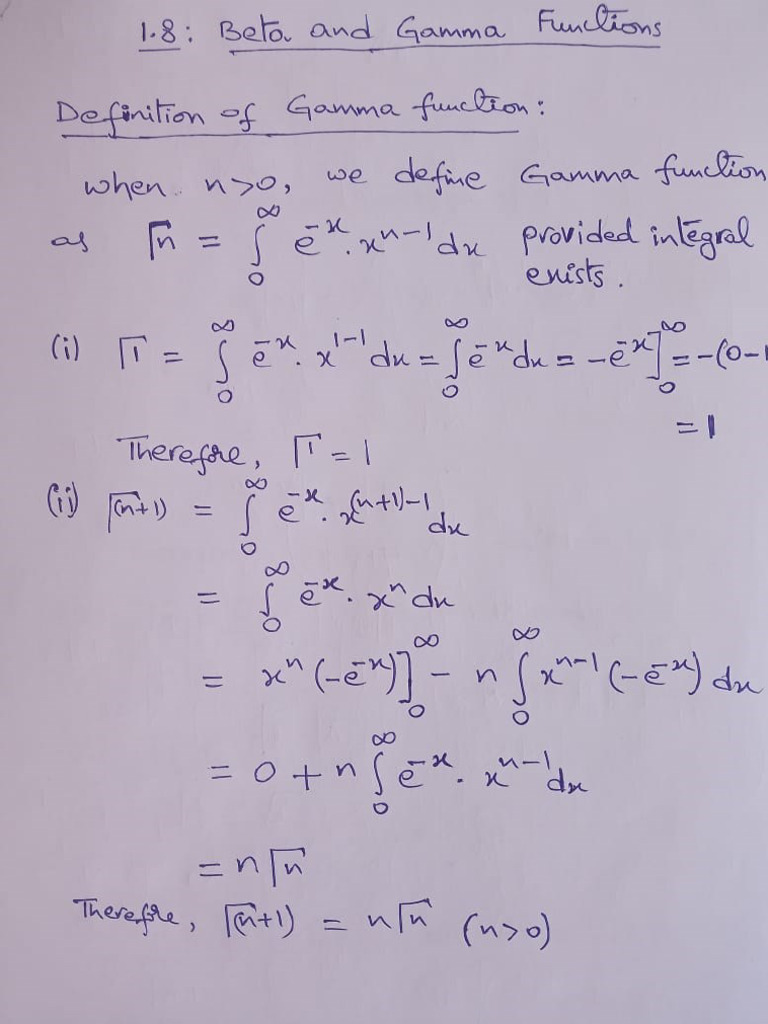 1.8: Beta and Gamma Functions
Definition of Gamma function:
when n>0, we define Gamma function
as Γn = ∫₀^∞ e^-x . x^n-1 dx provided integral
exists.
(i) Γ1 = ∫₀^∞ e^-x . x^1-1 dx = ∫₀^∞ e^-x dx = -e^-x]₀^∞ = -(0-1
= 1
Therefore, Γ1 = 1
(ii) Γ(n+1) = ∫₀^∞ e^-x . x^(n+1)-1 dx
= ∫₀^∞ e^-x . x^n dx
= x^n (-e^-x)]₀^∞ - n ∫₀^∞ x^n-1 (-e^-x) dx
= 0 + n ∫₀^∞ e^-x . x^n-1 dx
= n Γn
Therefore, Γ(n+1) = n Γn (n>0)